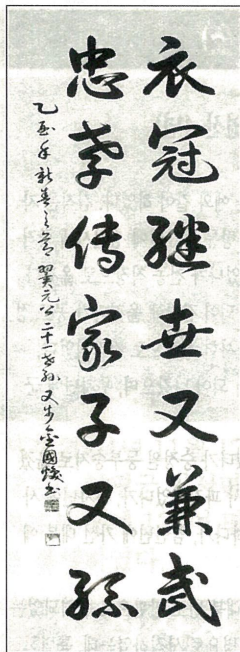 衣冠繼世又兼武
忠孝傳家子又孫
乙酉年新春之節 翼元公二十一世孫 又步 金國煥書